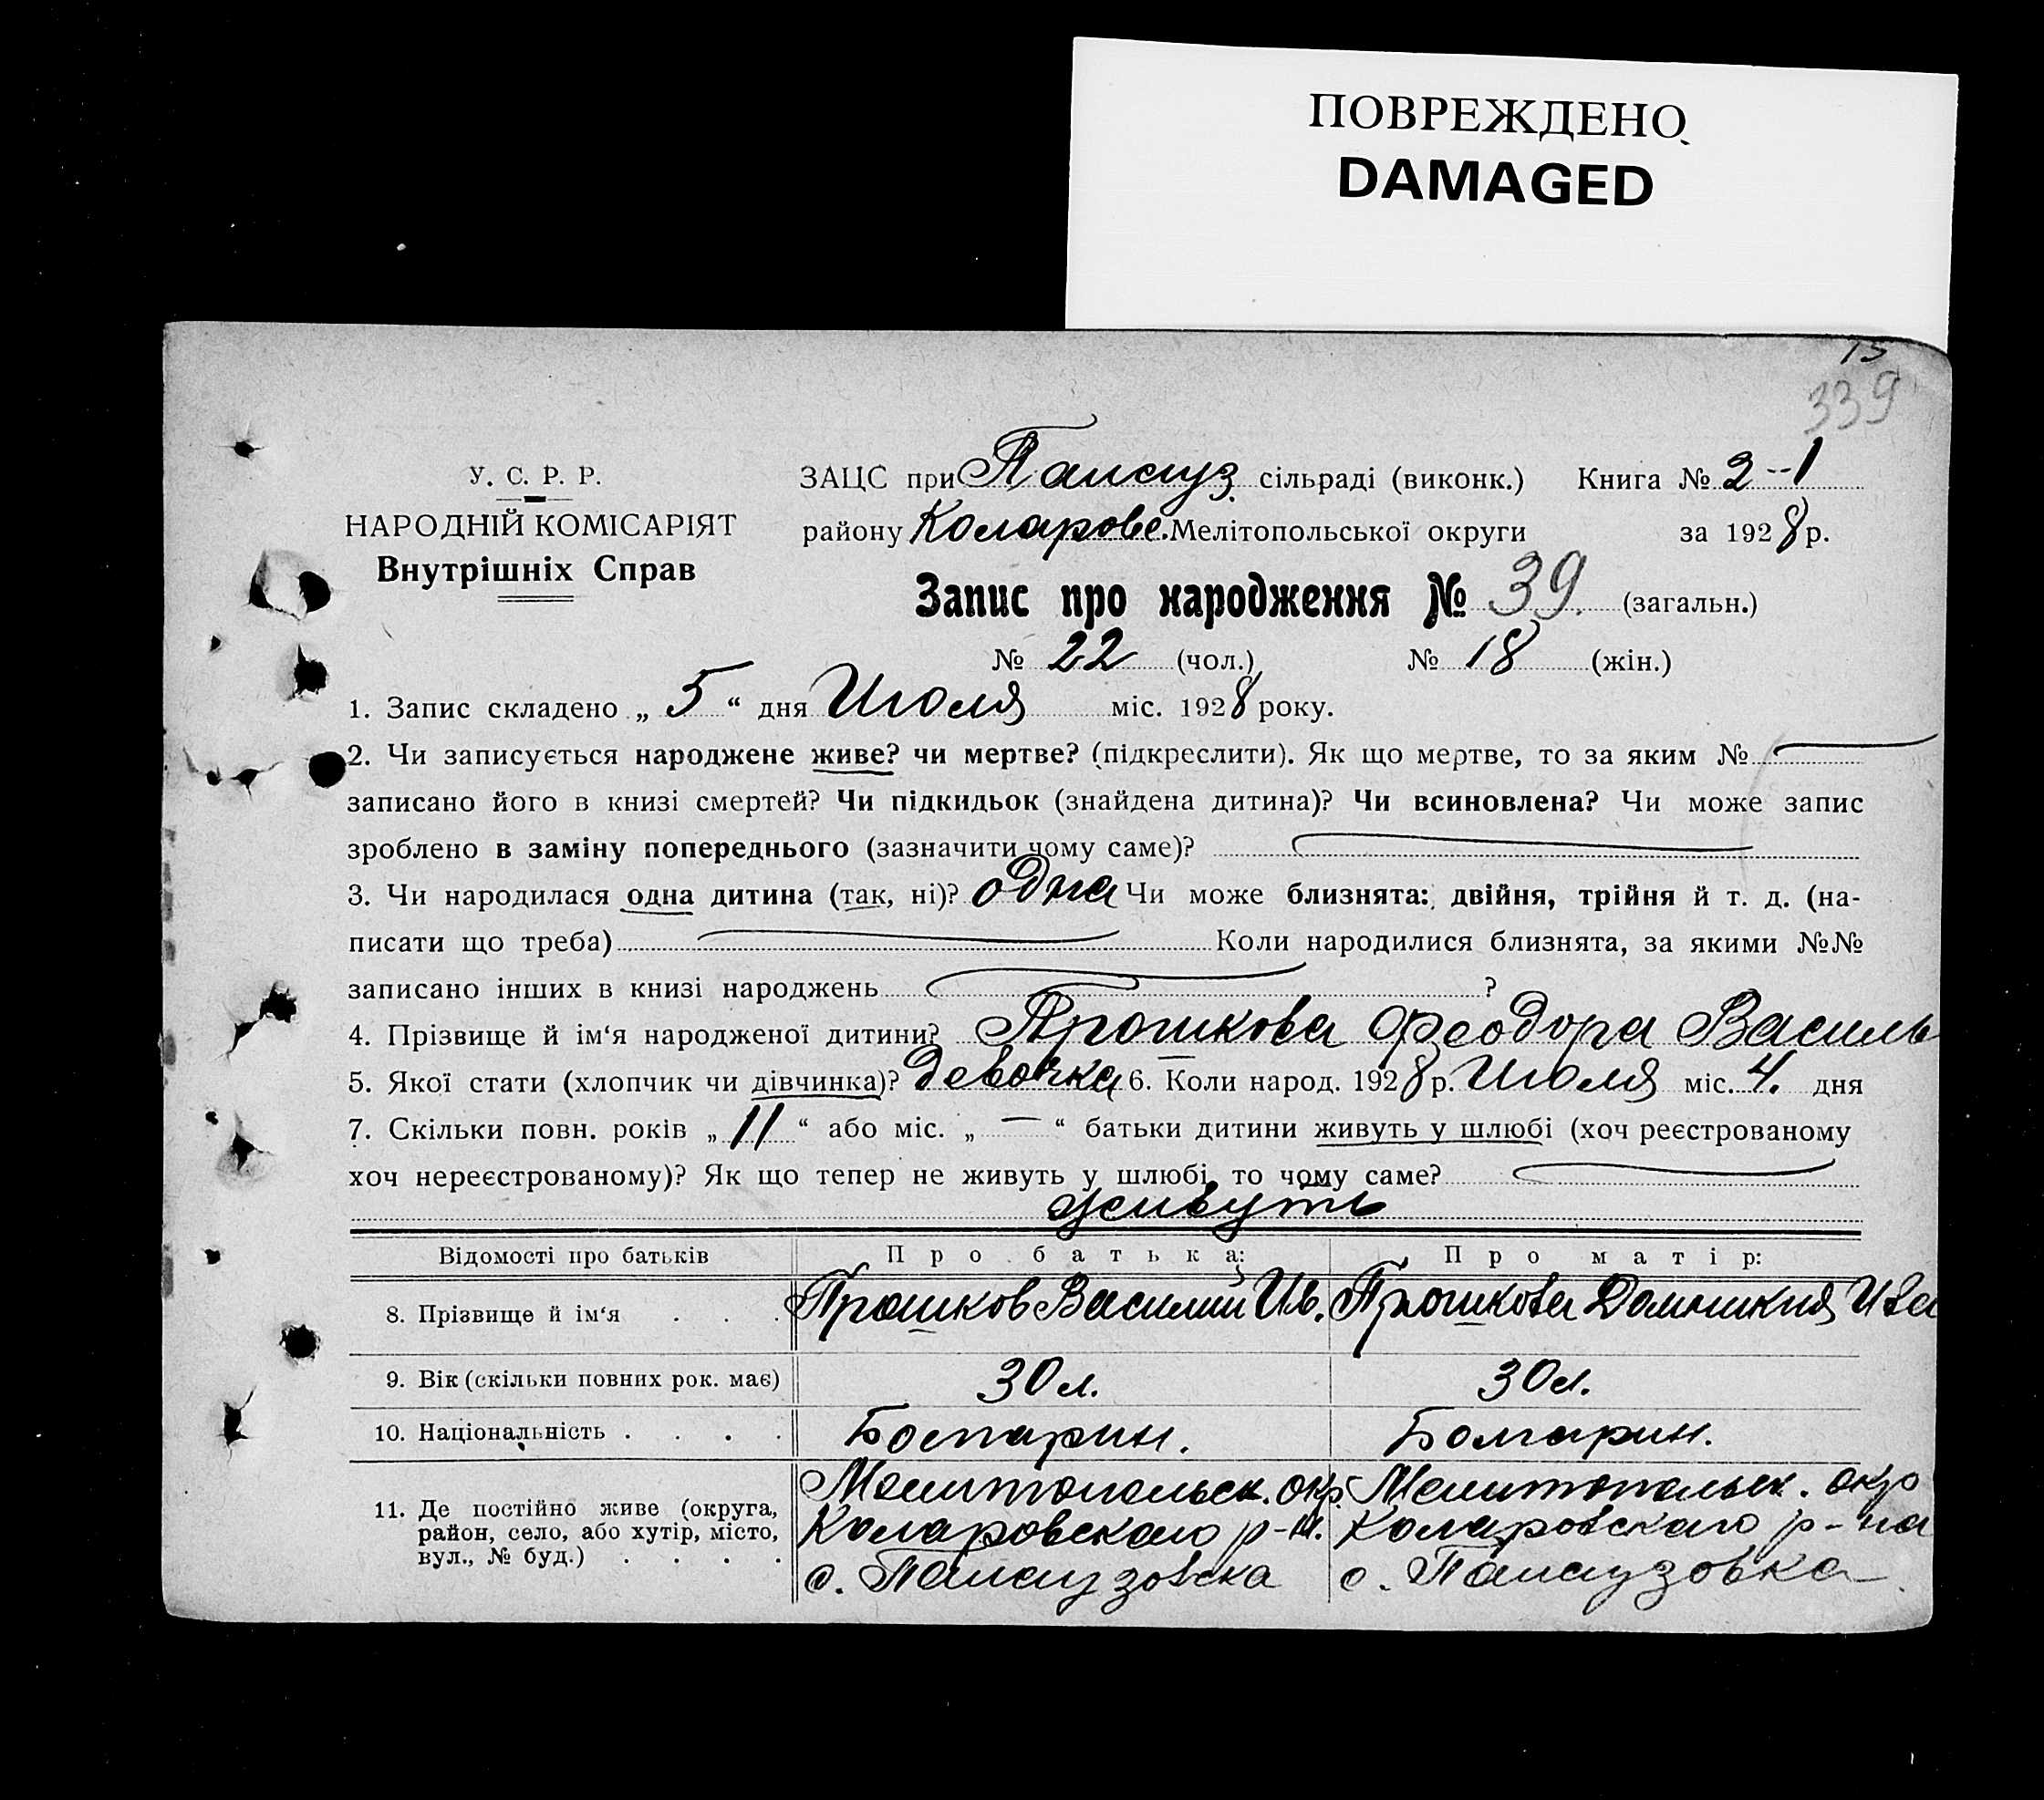 ПОВРЕЖДЕНО
DAMAGED
15
339
У. С. Р. Р.
НАРОДНІЙ КОМІСАРІЯТ
Внутрішніх Справ
ЗАЦС при Палауз. сільраді (виконк.) Книга № 2-1
району Коларовс. Мелітопольської округи за 1928 р.
Запис про народження № 39. (загальн.)
№ 22 (чол.) № 18 (жін.)
1. Запис складено „ 5 “ дня Июля міс. 1928 року.
2. Чи записується народжене живе? чи мертве? (підкреслити). Як що мертве, то за яким № —
записано його в книзі смертей? Чи підкидьок (знайдена дитина)? Чи всиновлена? Чи може запис
зроблено в заміну попереднього (зазначити чому саме)? —
3. Чи народилася одна дитина (так, ні)? одна Чи може близнята: двійня, трійня й т. д. (на-
писати що треба) — Коли народилися близнята, за якими №№
записано інших в книзі народжень — ?
4. Прізвище й ім‘я народженої дитини? Прошкова Феодора Василь
5. Якої стати (хлопчик чи дівчинка)? девочка 6. Коли народ. 1928 р. Июля міс. 4. дня
7. Скільки повн. років „ 11 “ або міс. „ — “ батьки дитини живуть у шлюбі (хоч реєстрованому
хоч нереєстрованому)? Як що тепер не живуть у шлюбі, то чому саме? —
живуть
Відомості про батьків Про батька: Про матір:
8. Прізвище й ім‘я . . . Прошков Василий Ив. Прошкова Домникия Ива
9. Вік (скільки повних рок. має) 30 л. 30 л.
10. Національність . . . . Болгарин. Болгарин.
11. Де постійно живе (округа, район, село, або хутір, місто, вул., № буд.) . . . .
Мелитопольск. окр. Мелитопольск. окр
Коларовского р-на. Коларовского р-на
с. Палаузовка с. Палаузовка